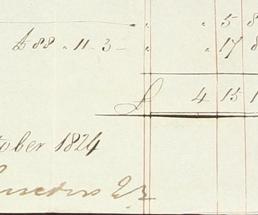 " " 5 8
£ 88 " 11 " 3 — " " 17 8
£ 4 15 1
tober 1824